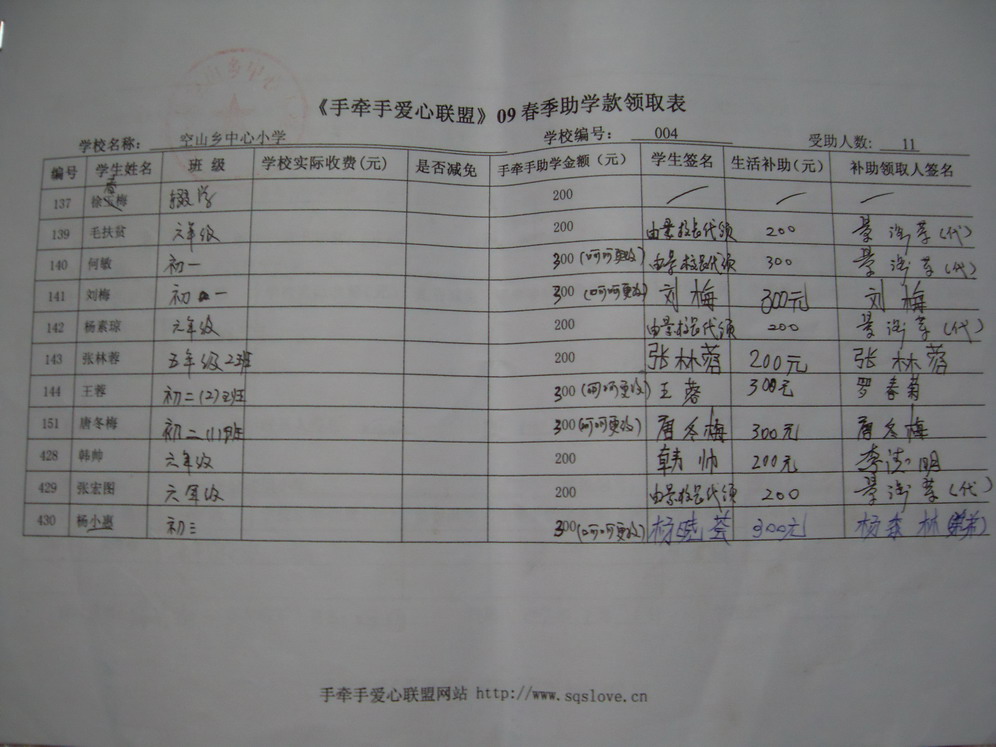 《手牵手爱心联盟》09春季助学款领取表
学校名称： 空山乡中心小学 学校编号： 004 受助人数： 11
编号 学生姓名 班 级 学校实际收费(元) 是否减免 手牵手助学金额（元） 学生签名 生活补助(元) 补助领取人签名
137 徐玉梅 辍学 200
139 毛扶贫 六年级 200 由景校长代领 200 景 (代)
140 何敏 初一 300 (呵呵更改) 由景校长代领 300 景 (代)
141 刘梅 初一 300 (呵呵更改) 刘梅 300元 刘梅
142 杨素琼 六年级 200 由景校长代领 200 景 (代)
143 张林蓉 五年级2班 200 张林蓉 200元 张林蓉
144 王蓉 初二(2)班 300 (呵呵更改) 王蓉 300元 罗春菊
151 唐冬梅 初二(1)班 300 (呵呵更改) 唐冬梅 300元 唐冬梅
428 韩帅 六年级 200 韩帅 200元 李 明
429 张宏图 六年级 200 由景校长代领 200 景 (代)
430 杨小惠 初三 300 (呵呵更改) 杨晓 300元 杨 林
手牵手爱心联盟网站 http://www.sqslove.cn